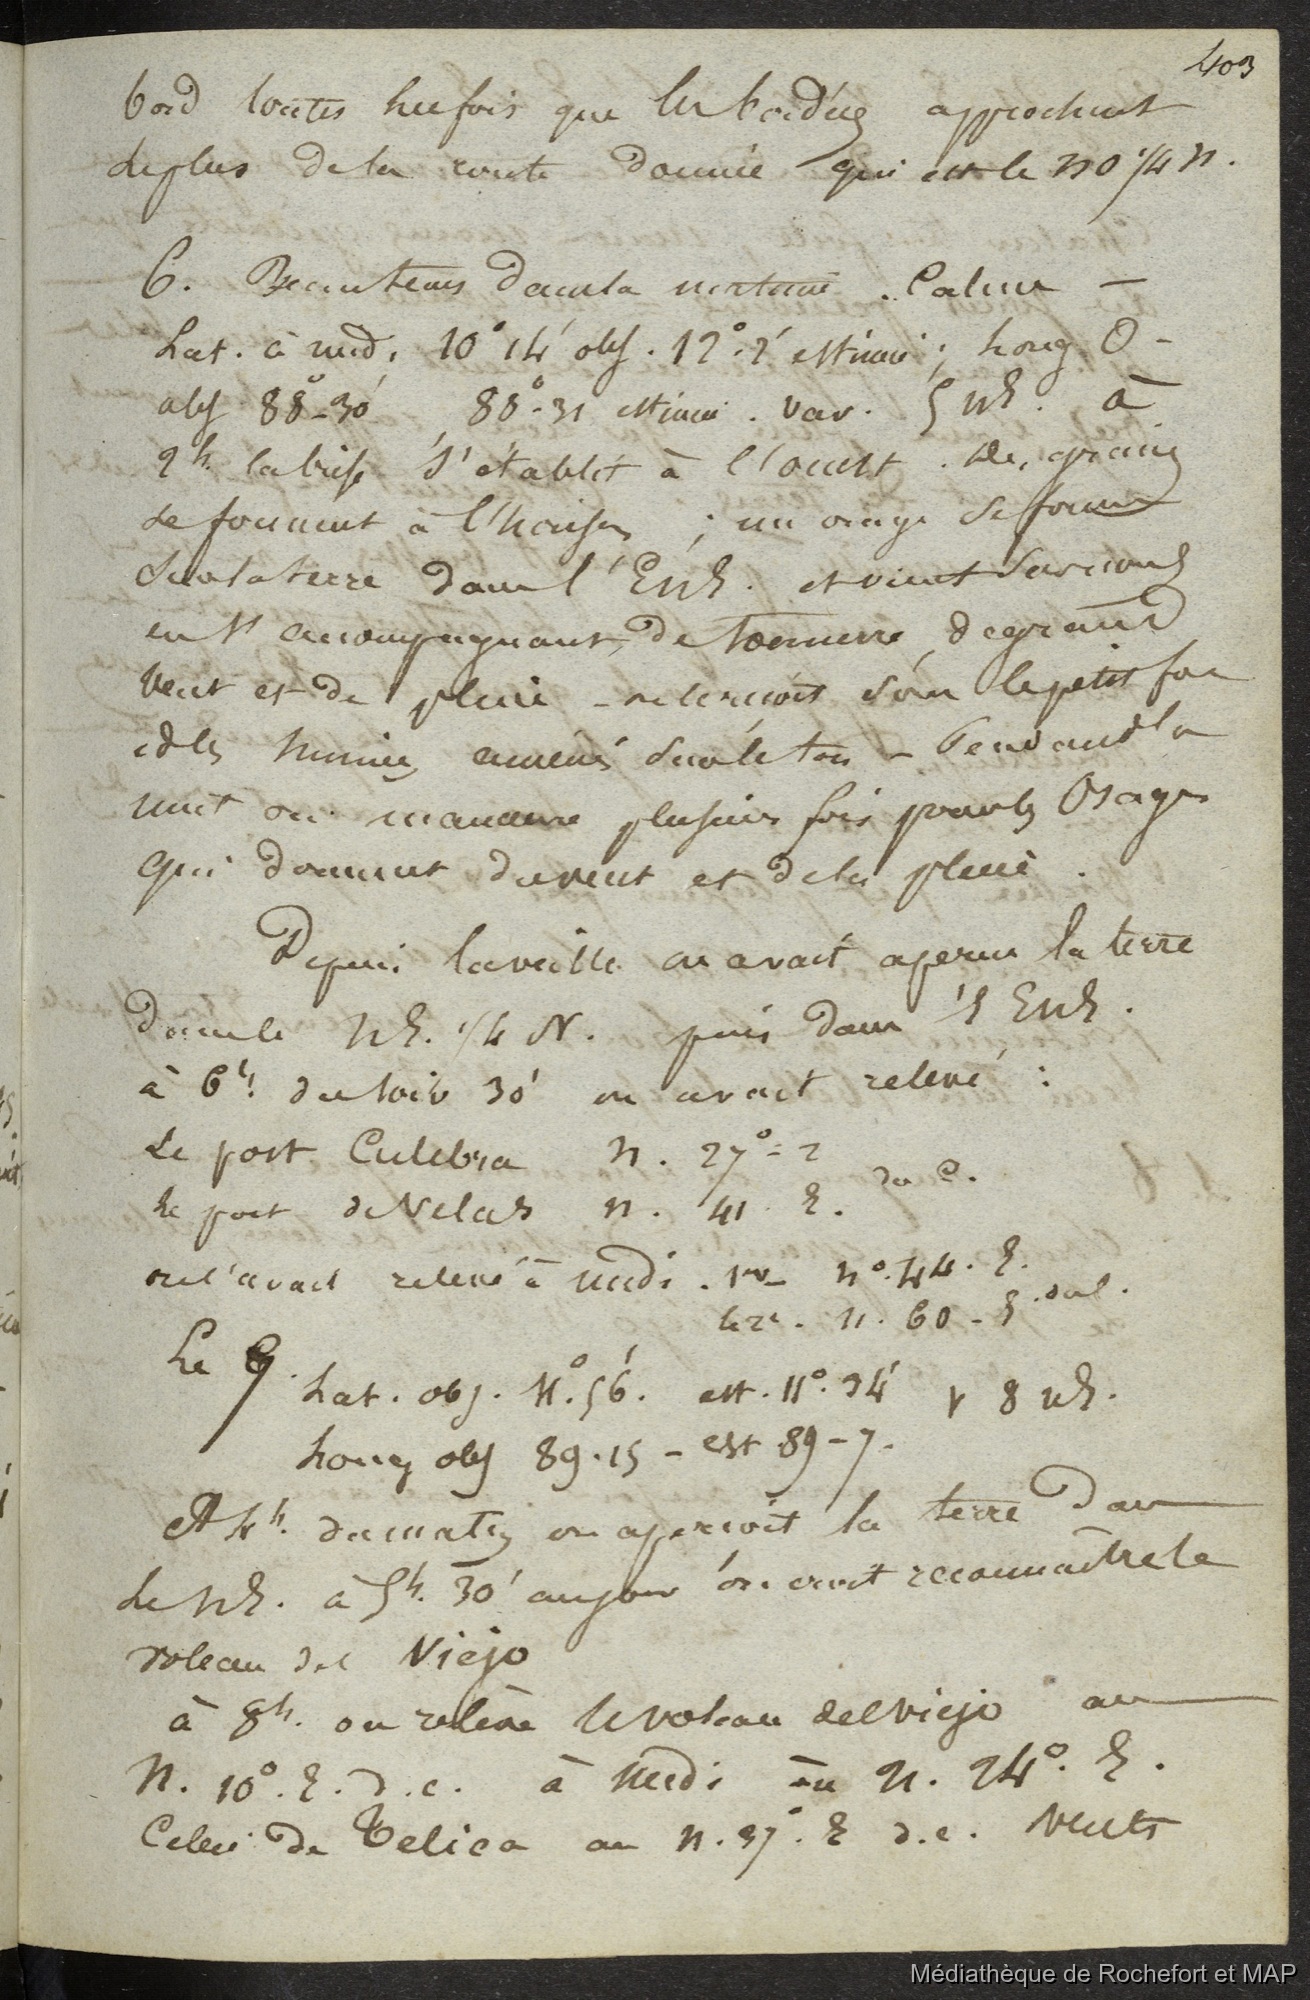 403
bord toutes les fois que les bordées approchent
le plus de la route donnée qui est le NO 1/4 N.
6. Beau tems dans la matinée. Calme –
Lat. à midi 10° 14' obs. 12°. 2' estimée ; Long O –
obs 88°-30' 88°-31 estimée. Var. 8 NE. à
2h. la brise s'établit à l'ouest. Des grains
se forment à l'horison ; un orage se forme
sur la terre dans l'ENE. et vient sur nous
en s'accompagnant de tonnerre, de grand
vent et de pluie – on le reçoit sous le petit foc
et les huniers amenés sur le ton – Pendant la
nuit on manœuvre plusieurs fois pour les Orages
qui donnent du vent et de la pluie.
Depuis la veille on avait aperçu la terre
dans le NE. 1/4 N. puis dans l'ENE.
à 6h. du soir 30' on avait relevé :
Le port Culebra N. 27° = E
le port de Velas N. 41 E. du C.
on l'avait relevé à midi. 1er N°. 44. E.
le 2e. N. 60 – E du C.
Le 7. Lat. obs. 11°. 56'. est. 11°. 34' V 8 NE.
Long obs 89.15 – est 89-7.
A 4h. du matin on aperçoit la terre dans
le NE. à 5h. 30' au jour on croit reconnaitre le
volcan del Viejo
à 8h. on relève le volcan del Viejo au
N. 10°. E. d. c. à midi au N. 24°. E.
Celui de Telica au N. 37°. E d. c. Vents
Médiathèque de Rochefort et MAP